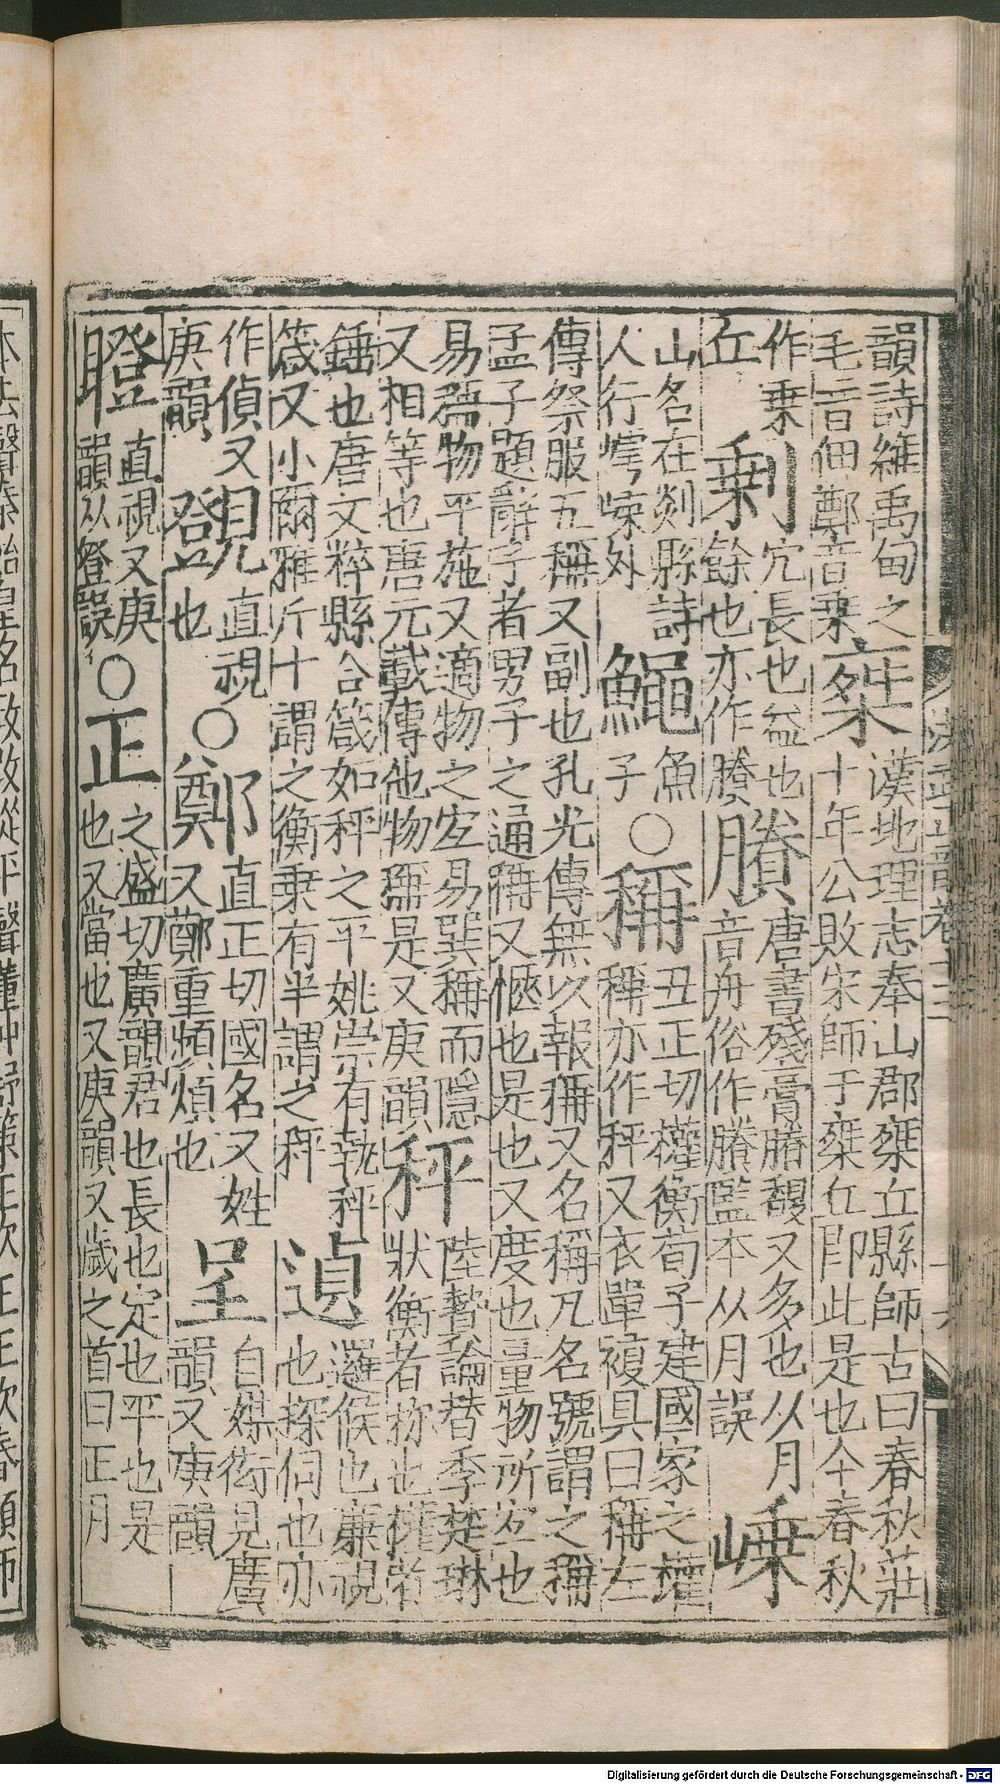 韻詩維禹甸之毛音佃鄭音乘椉漢地理志泰山郡椉丘縣師古曰春秋莊十年公敗宋師于椉丘即此是也今春秋
作乗丘剩冗長也益也餘也亦作賸賸唐書殘膏賸馥又多也从月音舟俗作賸監本从月誤嵊
山名在剡縣詩人行嶀嵊外鱦魚子○稱丑正切權衡荀子建國家之權稱亦作秤又衣單複具曰稱左
傳祭服五稱又副也孔光傳無以報稱又名稱凡名號謂之稱孟子題辭子者男子之通稱又愜也是也又度也量物所宜也
易稱物平施又適物之宜易巽稱而隱又相等也唐元載傳他物稱是又庚韻秤陸贄論替李楚琳狀衡者称也權者
錘也唐文粹縣合箴如秤之平姚崇有執秤箴又小爾雅斤十謂之衡乗有半謂之秤遉邏候也亷視也探伺也亦
作偵又庚韻覴直視也○鄭直正切國名又姓又鄭重頻煩也呈自媒衒見廣韻又庚韻
瞪直視又庚韻从登誤○正之盛切廣韻君也長也定也平也是也又當也又庚韻又歲之首曰正月
Digitalisierung gefördert durch die Deutsche Forschungsgemeinschaft - DFG